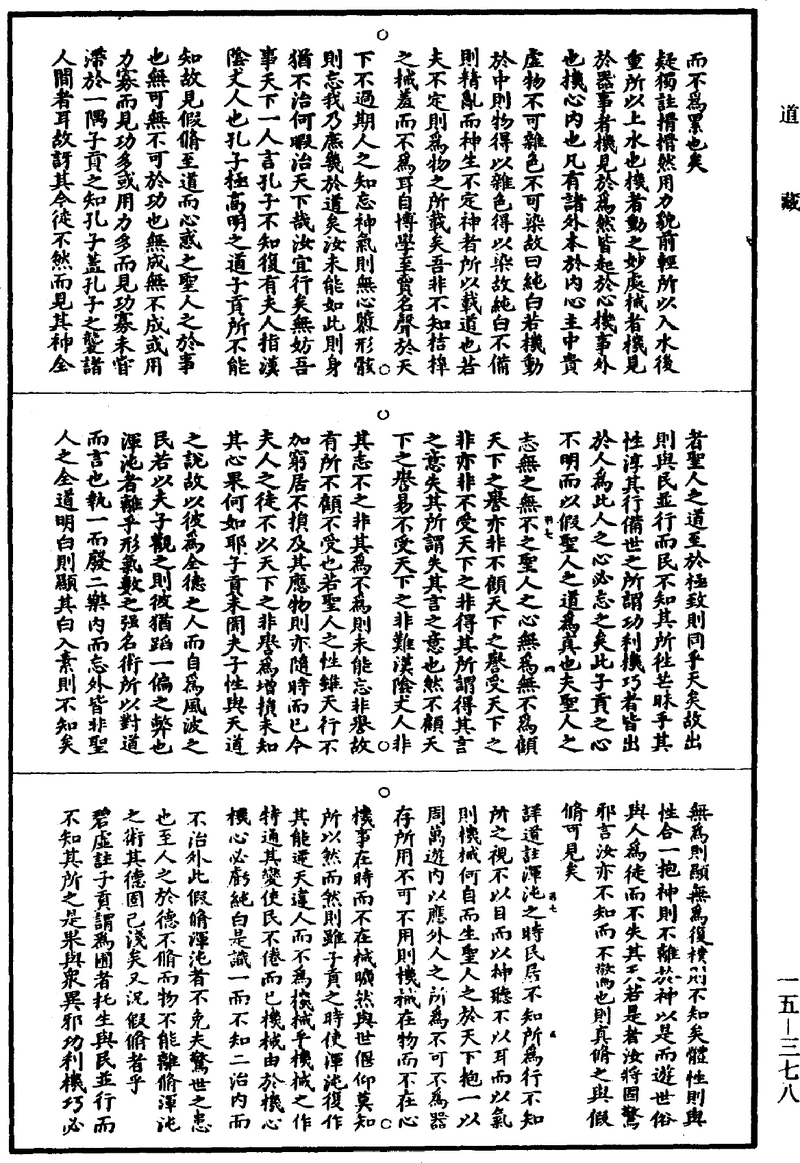 道藏
而不為累也矣
疑獨註搰搰然用力貌前輕所以入水後
重所以上水也機者動之妙處械者機見
於器事者機見於為然皆起於心機事外
也機心內也凡有諸外本於內心主中貴
虛物不可雜色不可染故曰純白若機動
於中則物得以雜色得以染故純白不備
則精亂而神生不定神者所以載道也若
夫不定則為物之所載矣吾非不知桔槔
之械羞而不為耳自博學至賣名聲於天
下不過期人之知忘神氣則無心隳形骸
則忘我乃庶幾於道矣汝未能如此則身
猶不治何暇治天下哉汝宜行矣無妨吾
事天下一人言孔子不知復有夫人指漢
陰丈人也孔子極高明之道子貢所不能
知故見假脩至道而心惑之聖人之於事
也無可無不可於功也無成無不成或用
力寡而見功多或用力多而見功寡未嘗
滯於一隅子貢之知孔子蓋孔子之鑿諸
人間者耳故訝其今徒不然而見其神全
者聖人之道至於極致則同乎天矣故出
則與民並行而民不知其所徃芒昧乎其
性淳其行備世之所謂功利機巧者皆出
於人為此人之心必忘之矣此子貢之心
不明而以假聖人之道為真也夫聖人之
志無之無不之聖人之心無為無不為顧
天下之譽亦非不顧天下之譽受天下之
非亦非不受天下之非得其所謂得其言
之意失其所謂失其言之意也然不顧天
下之譽易不受天下之非難漢陰丈人非
其志不之非其為不為則未能忘非譽故
有所不顧不受也若聖人之性雖天行不
加窮居不損及其應物則亦隨時而已今
夫人之徒不以天下之非譽為增損未知
其心果何如耶子貢未聞夫子性與天道
之說故以彼為全德之人而自為風波之
民若以夫子觀之則彼猶蹈一偏之弊也
渾沌者離乎形氣數之强名術所以對道
而言也執一而廢二樂內而忘外皆非聖
人之全道明白則顯其白入素則不知矣
無為則顯無為復樸則不知矣體性則與
性合一抱神則不離於神以是而遊世俗
與人為徒而不失其天若是者汝將固驚
邪言汝亦不知而不驚也則真脩之與假
脩可見矣
詳道註渾沌之時民居不知所為行不知
所之視不以目而以神聽不以耳而以氣
則機械何自而生聖人之於天下抱一以
周萬遊內以應外人之所為不可不為器
存所用不可不用則機械在物而不在心
機事在時而不在械曠然與世偃仰莫知
所以然而然則雖子貢之時使渾沌復作
其能逆天違人而不為機械乎機械之作
特通其變使民不倦而已機械由於機心
機心必虧純白是識一而不知二治內而
不治外此假脩渾沌者不免夫驚世之患
也至人之於德不脩而物不能離脩渾沌
之術其德固已淺矣又況假脩者乎
碧虛註子貢謂為圃者托生與民並行而
不知其所之是果與衆異邪功利機巧必
一五—三七八